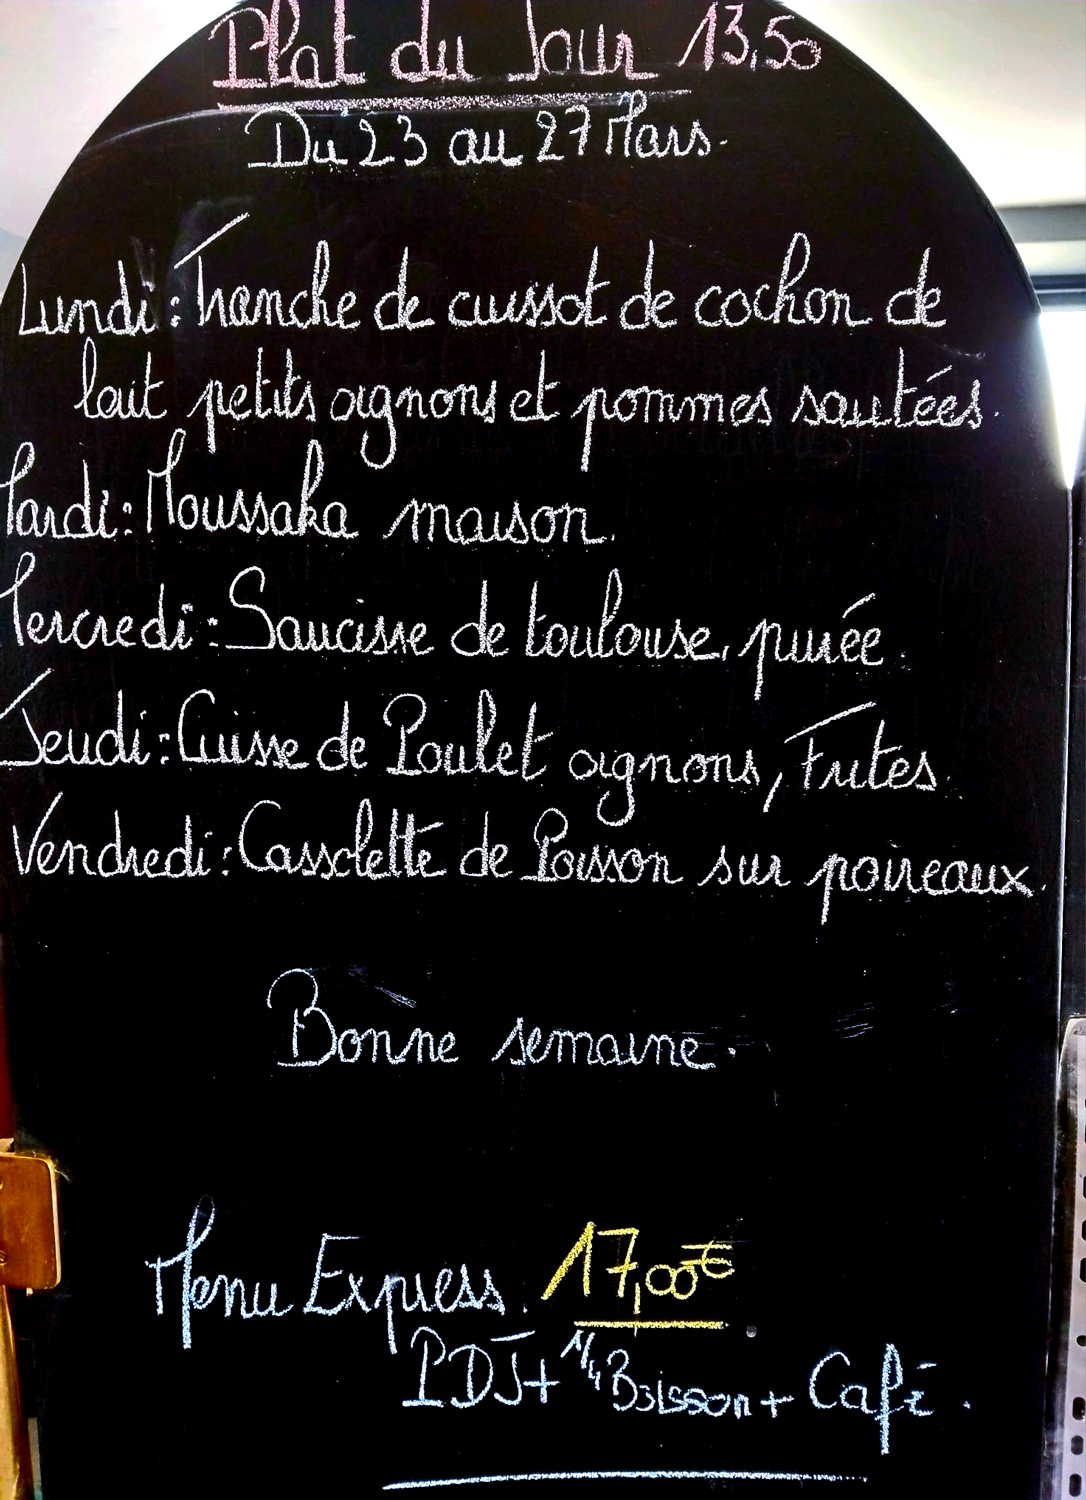 Plat du Jour 13,50
Du 23 au 27 Mars.
Lundi : Tranche de cuissot de cochon de
lait petits oignons et pommes sautées.
Mardi : Moussaka maison.
Mercredi : Saucisse de toulouse, purée.
Jeudi : Cuisse de Poulet oignons, Frites.
Vendredi : Cassolette de Poisson sur poireaux.
Bonne semaine.
Menu Express : 17,00€
PDJ + 1/4 Boisson + Café.